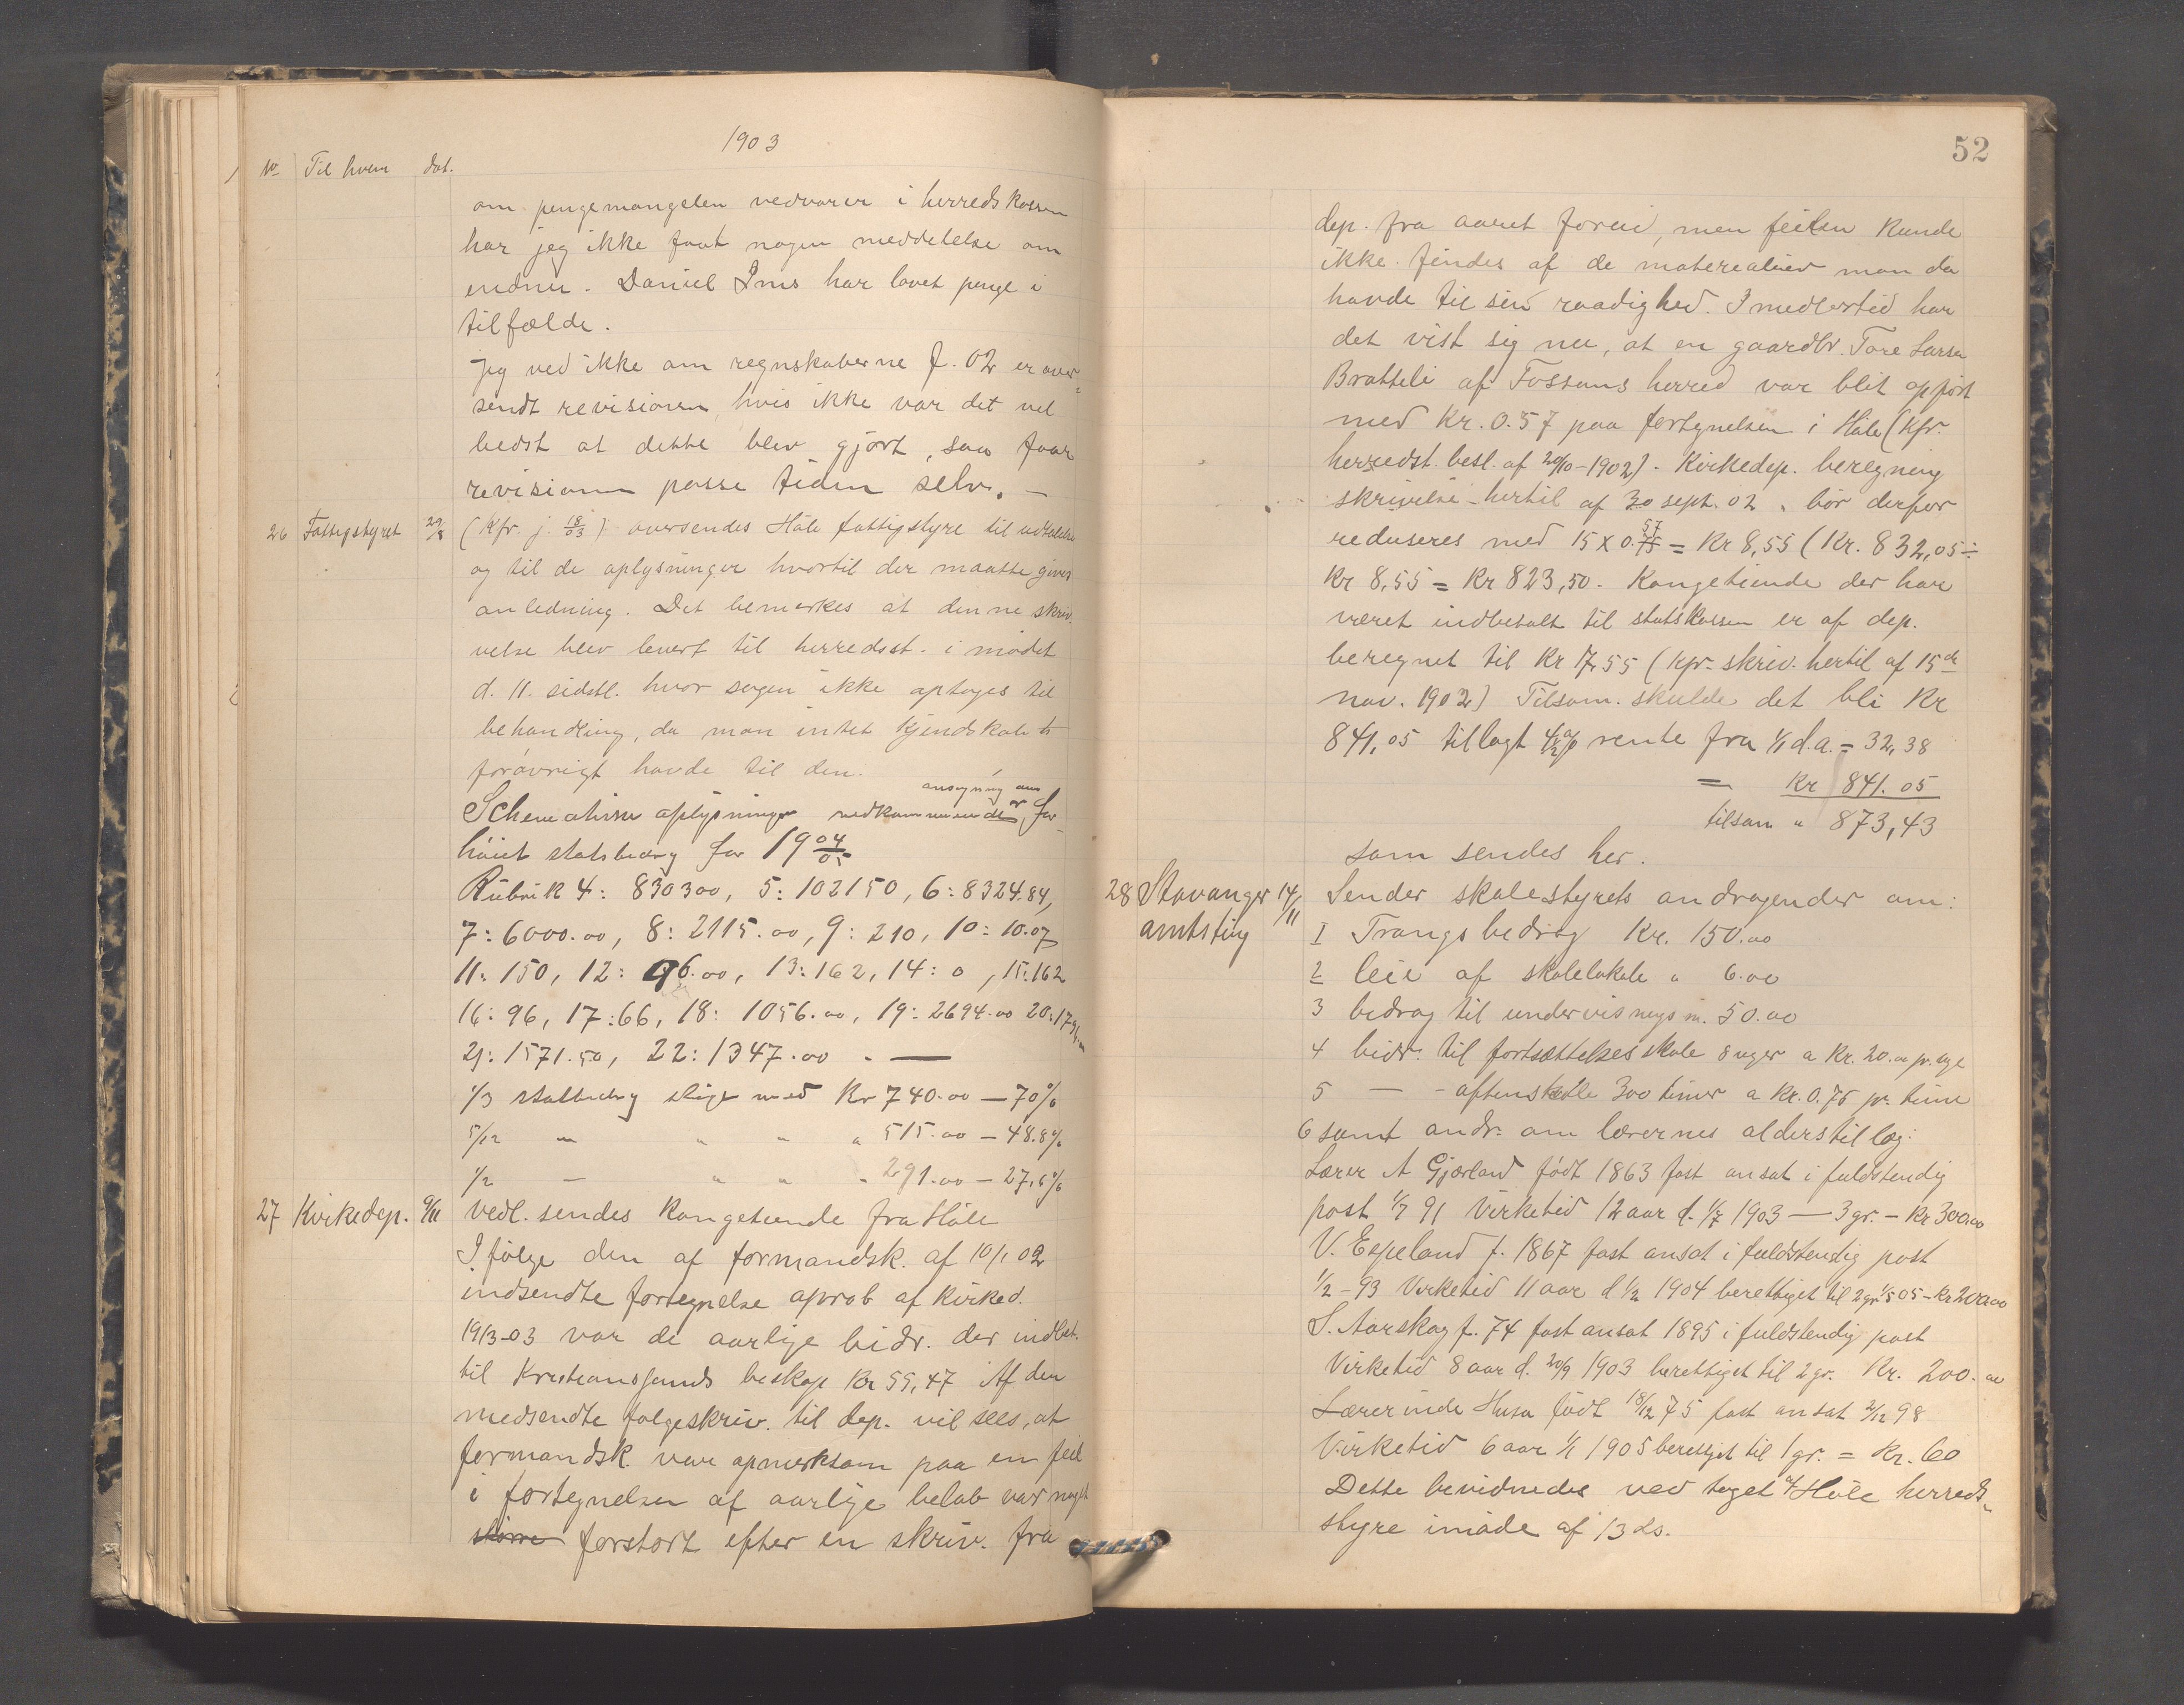 1903
No Til hvem dat.
om pengemangelen vedvarer i herredskassen
har jeg ikke faat nogen meddelelse om
endnu. Daniel Ims har lovet penge i
tilfælde.
Jeg ved ikke om regnskaberne f. 02 er over-
sendt revisionen, hvis ikke var det vel
bedst at dette blev gjort, saa faar
revisionen passe tiden selv. —
26 Fattigstyret 29/8 (Kfr. j. 18/03) oversendes Höle fattigstyre til udtalelse
og til de oplysninger hvortil der maatte gives
anledning. Det bemerkes at denne skri-
velse blev levert til herredsst. i mödet
d. 11. sidstl. hvor sagen ikke optoges til
behandling, da man intet kjendskab
forövrigt havde til den.
ansögning om
Schematiske oplysninger vedkommende for-
höiet statsbidrag for 1904/05
Rubrik 4: 830300, 5: 102150, 6: 8324.84,
7: 6000.00, 8: 2115.00, 9: 210, 10: 10.07
11: 150, 12: 96.00, 13: 162, 14: 0, 15: 162
16: 96, 17: 66, 18: 1056.00, 19: 2694.00 20: 17
21: 1571.50, 22: 1347.00 . —
1/3 statsbidrag stige med Kr 740.00 — 70%
5/12 — " " " 515.00 — 48.8%
1/2 — " " " 291.00 — 27,6%
27 Kirkedep. 9/11 Vedl. sendes Kongetiende fra Höle
I fölge den af formandsk. af 10/1 02
indsendte fortegnelse aprob af Kirked.
19/3-03 var de aarlige bidr. der indbet.
til Kristiansands beskop Kr 55,47 Af den
medsendte fölgeskriv. til dep. vil sees, at
formandsk. var opmerksom paa en feil
i fortegnelsen af aarlige beløb var noget
större forstort efter en skriv. fra
52
dep. fra aaret forud, men feilen kunde
ikke findes af de materealier man da
havde til sin raadighed. Imedlertid har
det vist sig nu, at en gaardbr. Tore Larsen
Bratteli af Fossans herred var blit opført
med Kr. 0.57 paa fortegnelsen i Höle (Kfr.
herredst. besl. af 20/10-1902). Kirkedep. beregning
skrivelse hertil af 30 sept. 02, bör derfor
57
reduseres med 15 x 0.75 = Kr 8,55 (Kr. 832,05 ÷
Kr 8,55 = Kr 823,50. Kongetiende der har
været indbetalt til statskassen er af dep.
beregnet til Kr 17,55 (kfr. skriv. hertil af 15de
nov. 1902) Tilsam. skulde det bli Kr
841,05 tillagt 4 1/2 % rente fra 1/1 d.a. = 32,38
= Kr 841.05
tilsam " 873,43
som sendes her.
28 Stavanger 14/11 Sender skolestyrets andragender om:
amtsting
1 Trangsbedrag Kr. 150.00
2 leie af skolelokale " 6.00
3 bidrag til undervisnings m. 50.00
4 bidr. til fortsættelsesskole 8 uger a Kr. 20.00 pr. uge
5 — - aftenskole 300 timer a Kr. 0.75 pr. time
6 samt andr. om lærernes alderstillæg:
Lærer A Gjærland födt 1863 fast ansat i fuldstendig
post 1/7 91 Virketid 12 aar d. 1/7 1903 — 3 gr. — Kr 300.00
V. Espeland f. 1867 fast ansat i fuldstendig post
1/2-93 Virketid 11 aar d 1/2 1904 berettiget til 2 gr. 1/5 05 — Kr 200.00
S. Aarskog f. 74 fast ansat 1895 i fuldstendig post
Virketid 8 aar d. 20/9 1903 berettiget til 2 gr. Kr. 200.00
Lærerinde Husa födt 18/12 75 fast ansat 2/12 98
Virketid 6 aar 1/1 1905 berettiget til 1 gr. = Kr. 60
Dette bevidnedes ved toget af Höle herreds-
styre i möde af 13 ds.